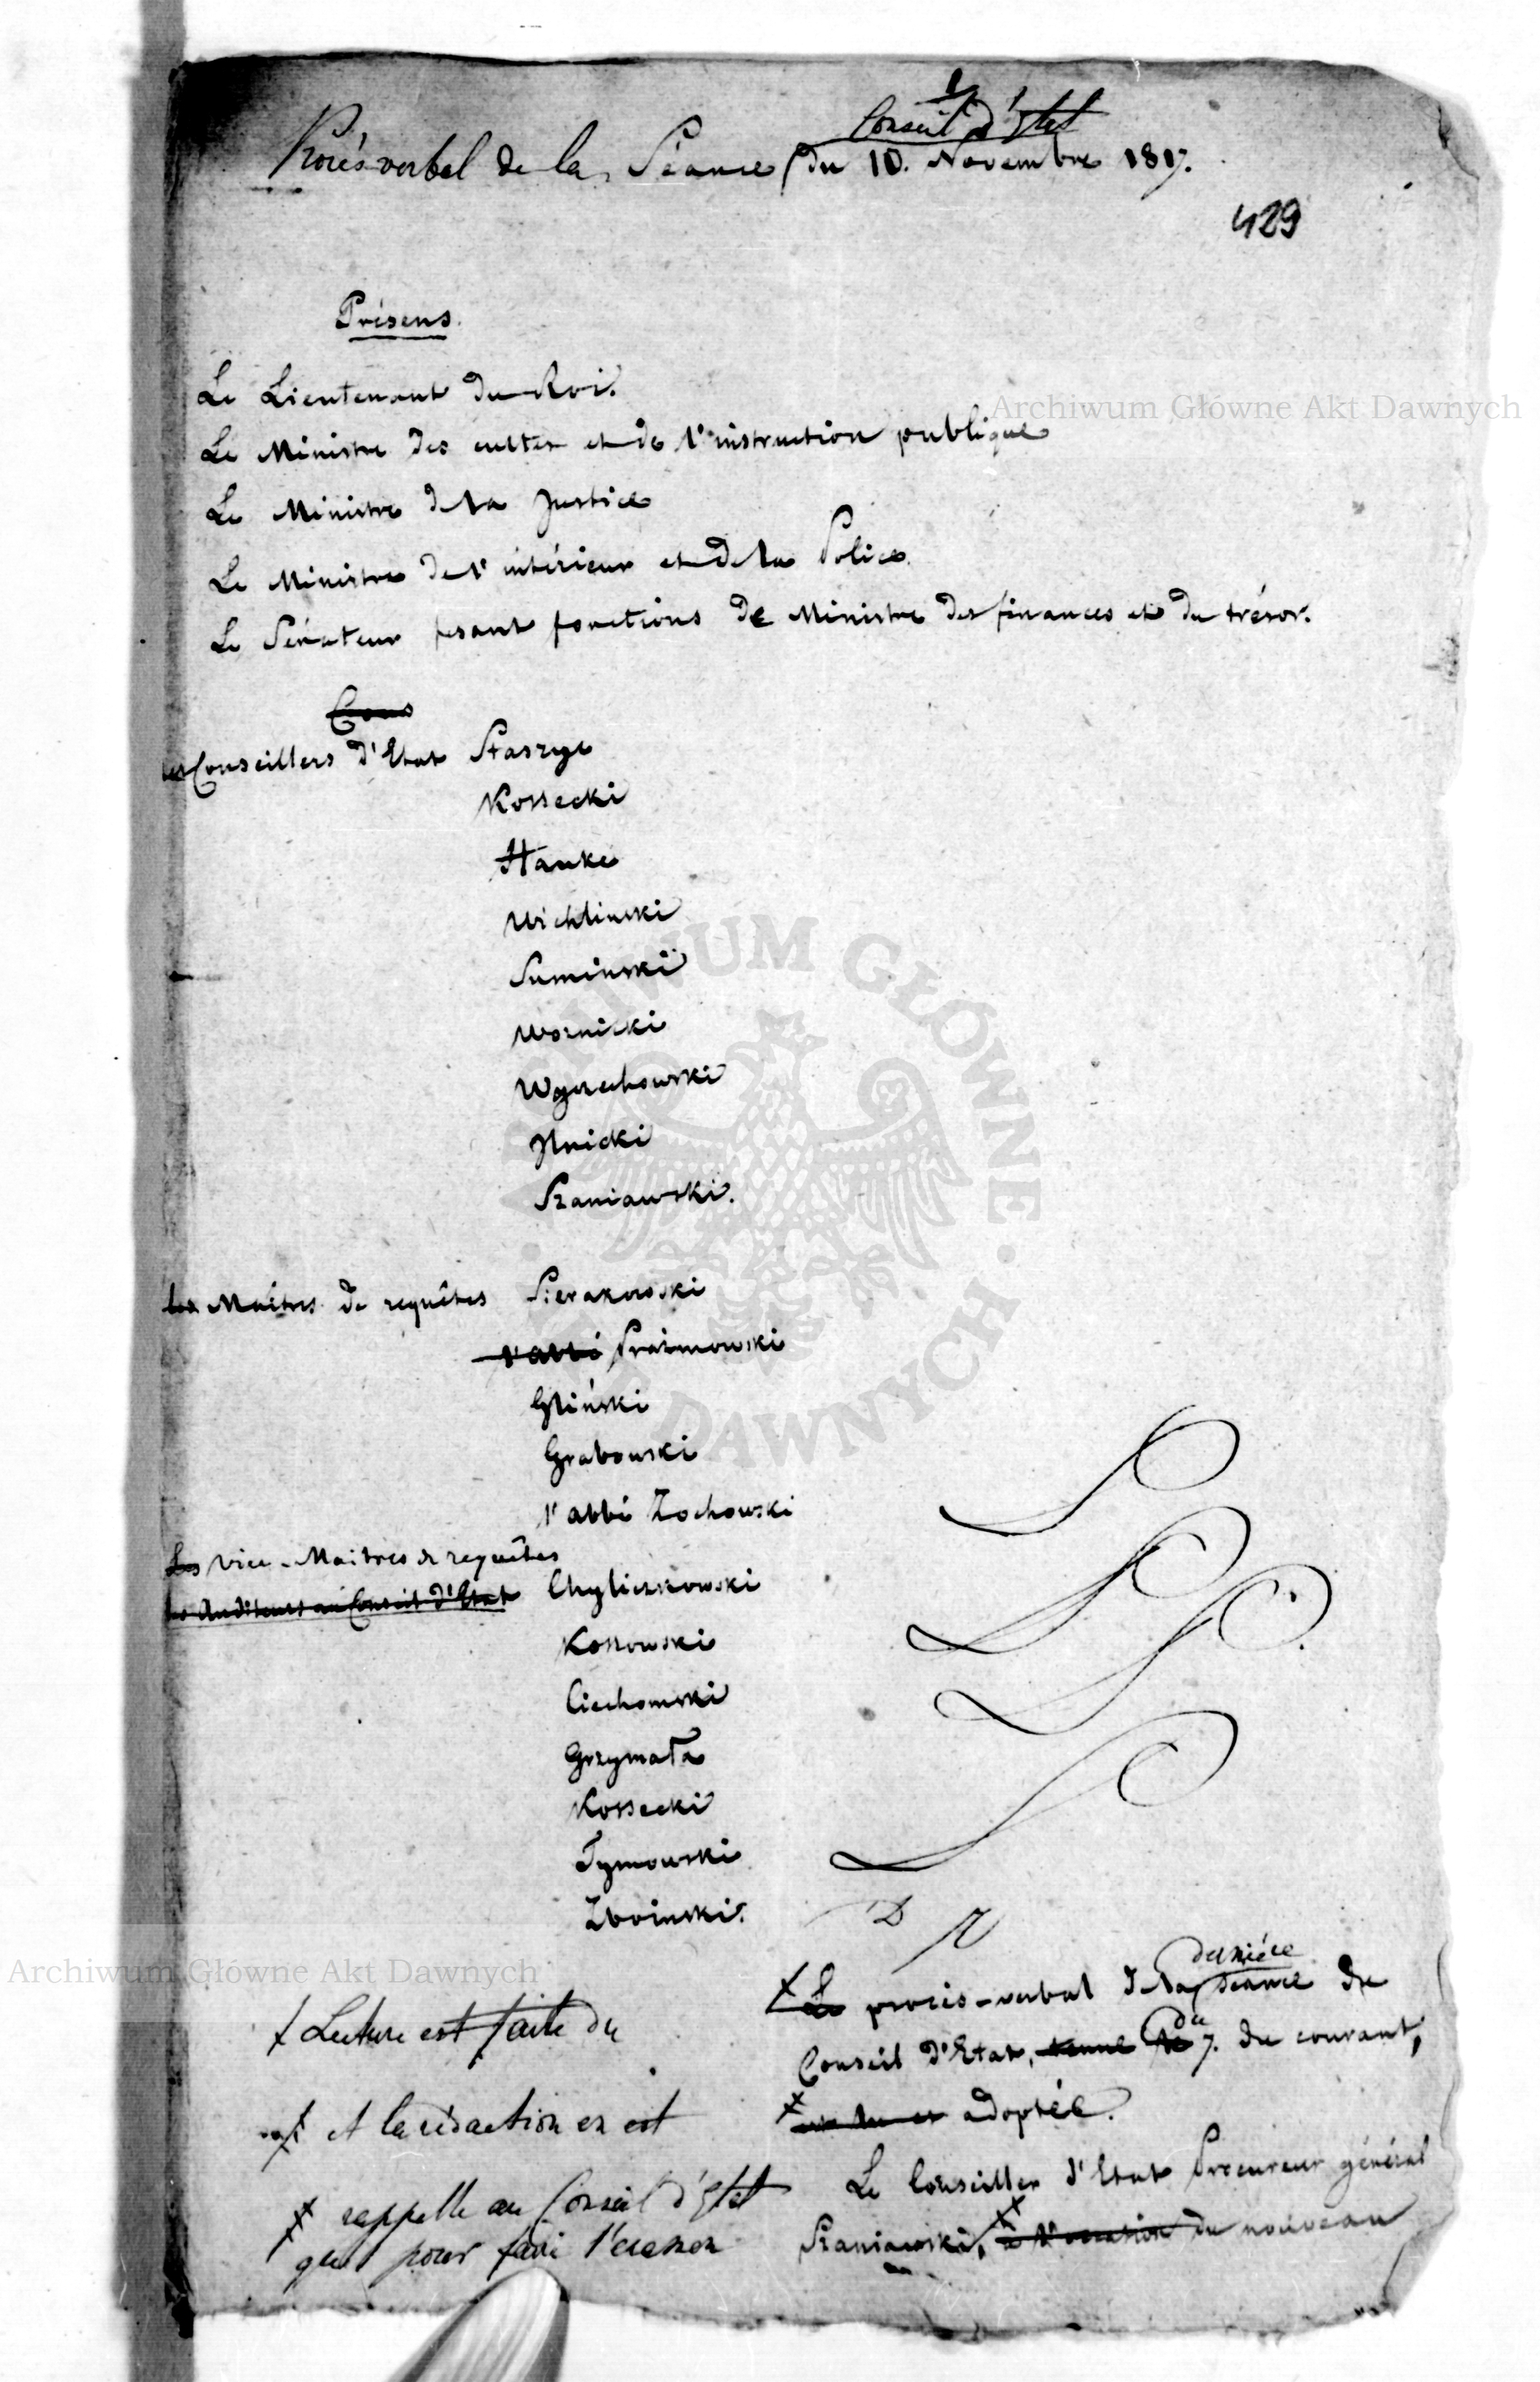 Conseil d'Etat
Procès verbal de la Séance du 10. Novembre 1817.
429
Présens.
Le Lieutenant du Roi.
Archiwum Główne Akt Dawnych
Le Ministre des cultes et de l'instruction publique
Le Ministre de la Justice
Le Ministre de l'intérieur et de la Police.
Le Sénateur fesant fonctions de Ministre des finances et du trésor.
Cons
les Conseillers d'Etat Staszyc
Kossecki
Hauke
Wichlinski
Suminski
Woznicki
Wyczechowski
Jlnicki
Szaniawski.
les Maîtres de requêtes Sierakowski
l'abbé Prażmowski
Gliński
Grabowski
l'abbé Zochowski
Les Vice-Maîtres de requêtes
les Auditeurs au Conseil d'Etat Chyliczkowski
Kossowski
Ciechomski
Grzymała
Kossecki
Tymowski
Zboinski.
D
Archiwum Główne Akt Dawnych
dernière
Le procès-verbal de la séance du
Lecture est faite du
Conseil d'Etat, tenue le du 7. du courant,
et la rédaction en est
adoptée.
Le Conseiller d'Etat Procureur général
rappelle au Conseil d'Etat
Szaniawski, à l'occasion du nouveau
que pour l'examen
ARCHIWUM GŁÓWNE AKT DAWNYCH